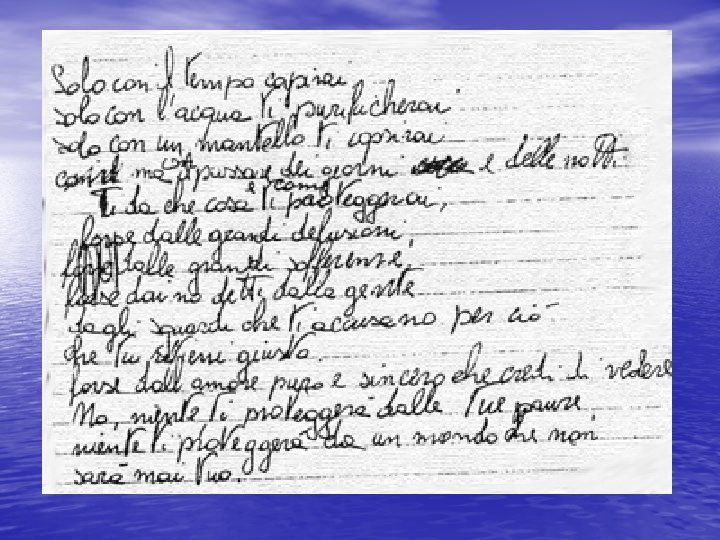 Solo con il tempo capirai
solo con l'acqua ti purificherai
solo con un mantello ti coprirai
ma passare dei giorni e delle notti
Ti da che cosa e come ti proteggerai,
forse dalle grandi delusioni,
forse dalle grandi sofferenze,
forse dai no detti dalla gente
dagli sguardi che ti accusano per ciò
che tu ritieni giusto.
forse dall'amore puro e sincero che credi di vedere
No, niente ti proteggerà dalle tue paure,
niente ti proteggerà da un mondo che non
sarà mai tuo.